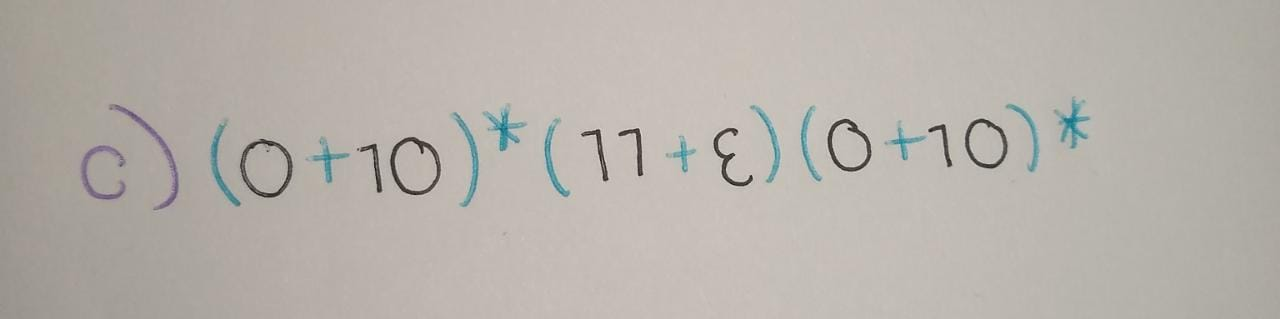 c) (0+10)*(11+ε)(0+10)*